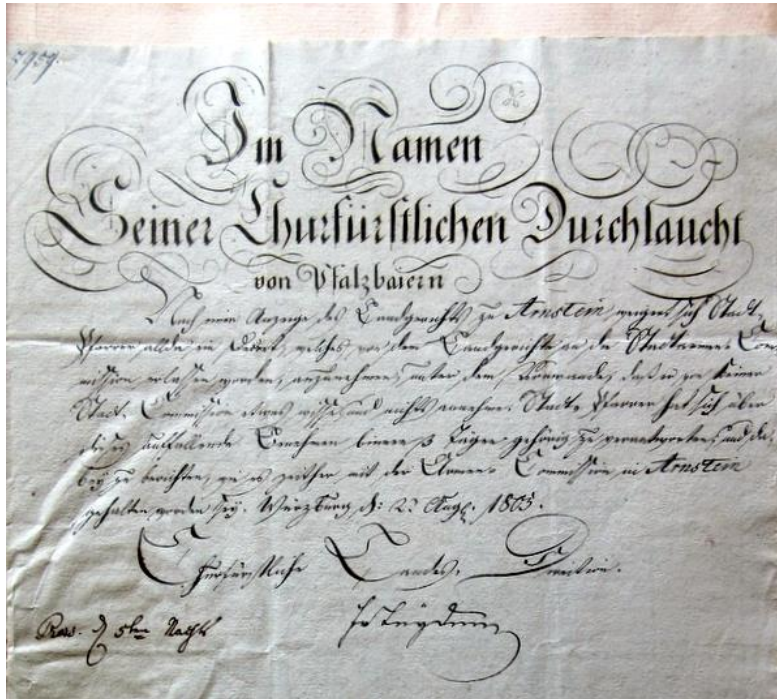 5959.
Im Namen
Seiner Churfürstlichen Durchlaucht
von Pfalzbaiern
Nach einer Anzeige des Landgerichts zu Arnstein, sich Stadt-
Pfarrer allda ein Decret, welches von dem Landgerichte an die Stadtarmen-Com-
mission erlassen worden, anzunehmen, unter dem Vorwande, daß er von keiner
Stadt-Commission etwas wisse, und nichts annehme. Stadt-Pfarrer hat sich über
dieses auffallende Benehmen binnen 8 Tägen gehörig zu verantworten, und da-
bey zu berichten, wie es zeither mit der Armen-Commission in Arnstein
gehalten worden sey. Würzburg d: 23 Aug. 1805.
Churfürstliche Landes-Direction.
5ten